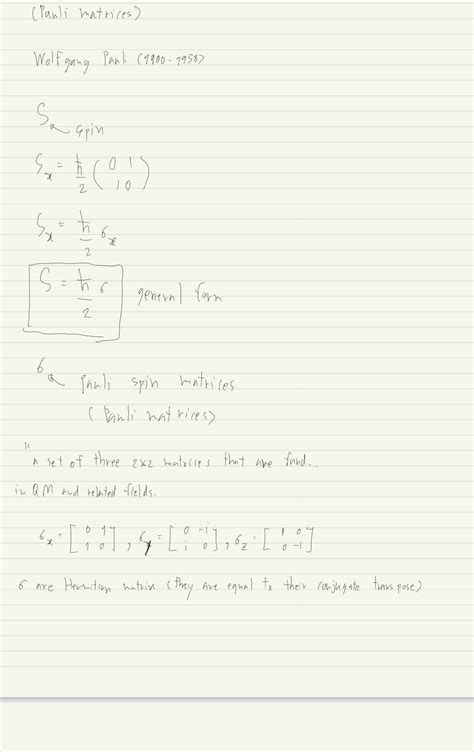 (Pauli matrices)
Wolfgang Pauli (1900-1958)
S ← spin
S_x = ħ/2 ( 0 1
1 0 )
S_x = ħ/2 σ_x
S = ħ/2 σ general form
σ ← Pauli spin matrices
(Pauli matrices)
" a set of three 2x2 matrices that are found..
in QM and related fields.
σ_x = [ 0 1
1 0 ] , σ_y = [ 0 -i
i 0 ] , σ_z = [ 1 0
0 -1 ]
σ are Hermitian matrix (they are equal to their conjugate transpose)